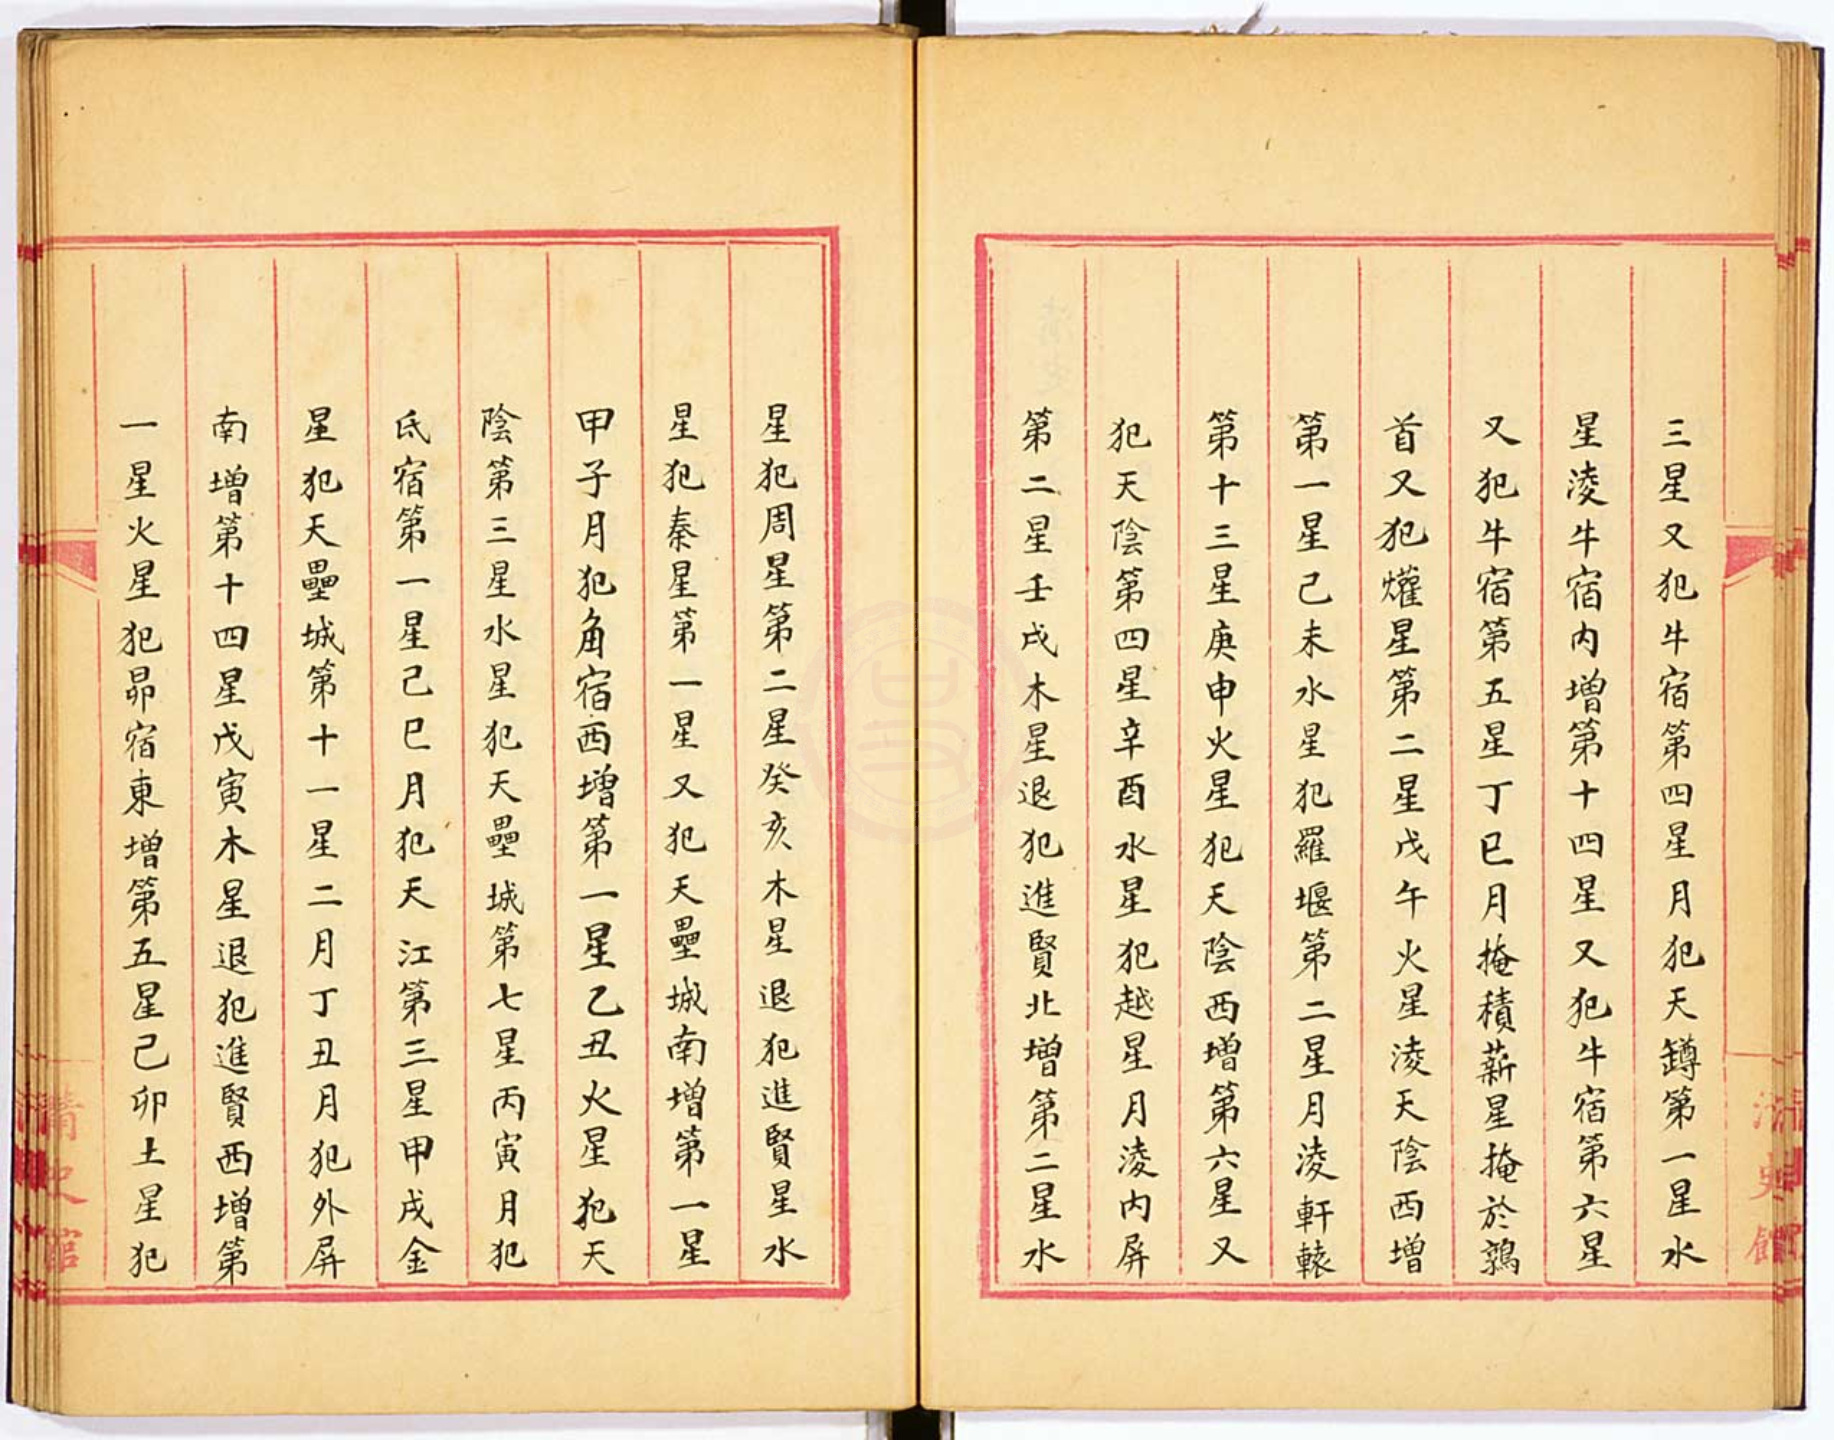 三星又犯牛宿第四星月犯天罇第一星水
星淩牛宿内增第十四星又犯牛宿第六星
又犯牛宿第五星丁巳月掩積薪星掩於鶉
首又犯爟星第二星戊午火星淩天陰西增
第一星己未水星犯羅堰第二星月淩軒轅
第十三星庚申火星犯天陰西增第六星又
犯天陰第四星辛酉水星犯越星月淩内屏
第二星壬戌木星退犯進賢北增第二星水
星犯周星第二星癸亥木星退犯進賢星水
星犯秦星第一星又犯天壘城南增第一星
甲子月犯角宿西增第一星乙丑火星犯天
陰第三星水星犯天壘城第七星丙寅月犯
氐宿第一星己巳月犯天江第三星甲戌金
星犯天壘城第十一星二月丁丑月犯外屏
南增第十四星戊寅木星退犯進賢西增第
一星火星犯昴宿東增第五星己卯土星犯
清史館